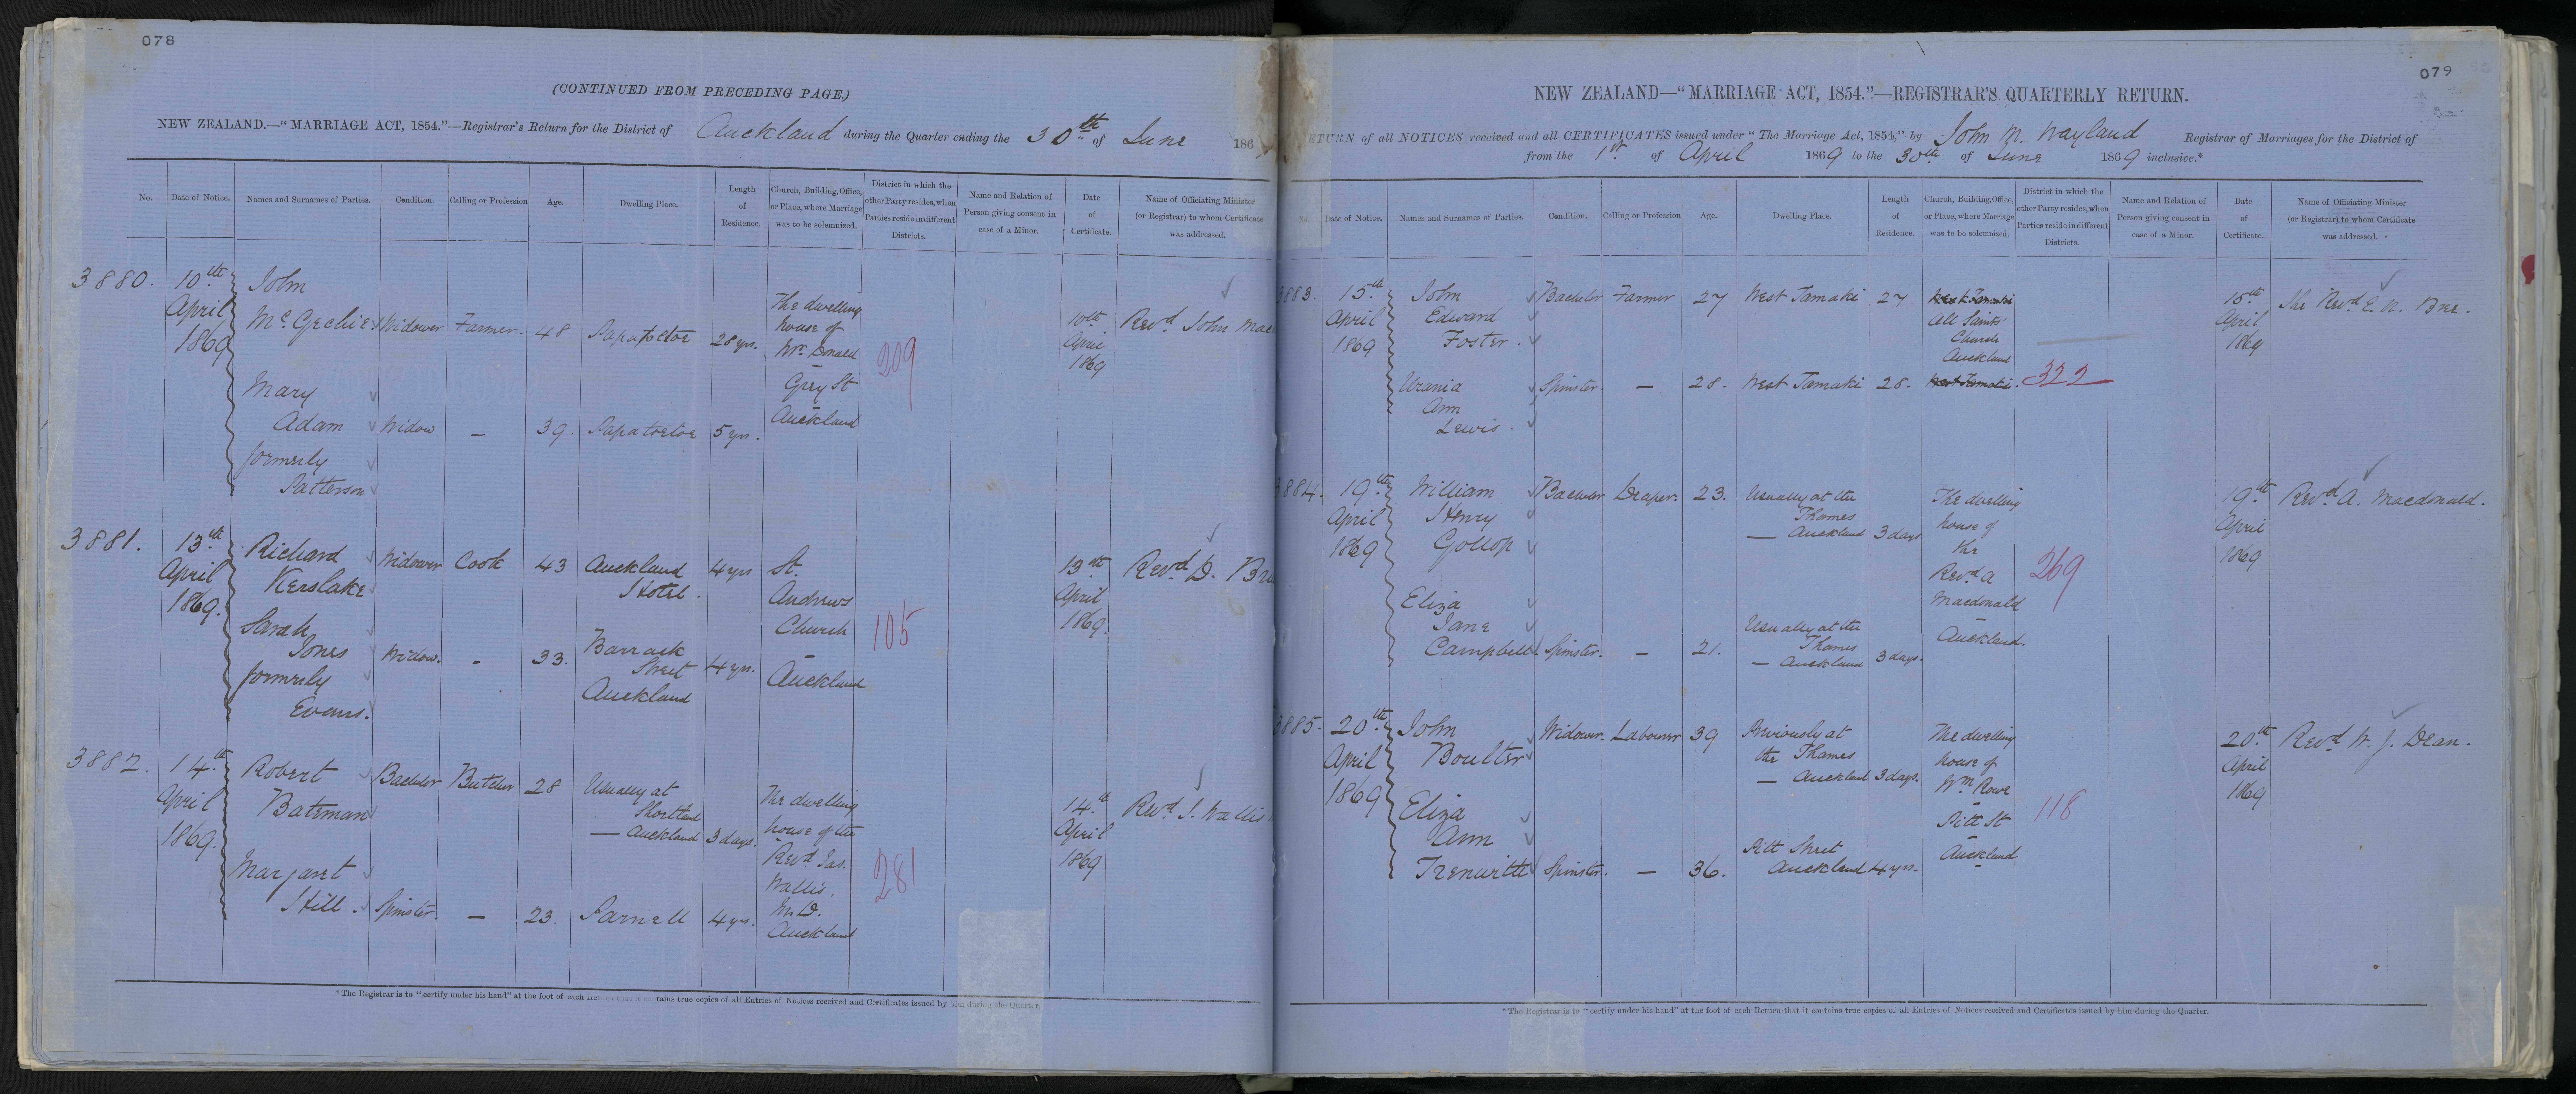 078
(CONTINUED FROM PRECEDING PAGE.)
NEW ZEALAND.—"MARRIAGE ACT, 1854."—Registrar's Return for the District of Auckland during the Quarter ending the 30th of June 186
No. Date of Notice. Names and Surnames of Parties. Condition. Calling or Profession Age. Dwelling Place. Length of Residence. Church, Building, Office, or Place, where Marriage was to be solemnized. District in which the other Party resides, when Parties reside in different Districts. Name and Relation of Person giving consent in case of a Minor. Date of Certificate. Name of Officiating Minister (or Registrar) to whom Certificate was addressed.
3880. 10th April 1869
John McGechie Widower Farmer. 48 Papatoetoe 28 yrs.
The dwelling house of Mr. Donald – Grey St Auckland
209
10th April 1869
Revd. John Mac
Mary Adam formerly Patterson Widow — 39. Papatoetoe 5 yrs.
3881. 13th April 1869.
Richard Kerslake Widower Cook 43 Auckland Hotel. 4 yrs
St. Andrews Church – Auckland
105
13th April 1869.
Revd. D. Bru
Sarah Jones formerly Evans. Widow. – 33. Barrack Street Auckland 4 yrs.
3882. 14th April 1869.
Robert Bateman Bachelor Butcher 28 Usually at Shortland — Auckland 3 days.
The dwelling house of the Revd. Jas. Wallis. M.D. Auckland
281
14th April 1869
Revd. J. Wallis
Margaret Hill. Spinster. — 23. Parnell 4 yrs.
*The Registrar is to "certify under his hand" at the foot of each Return that it contains true copies of all Entries of Notices received and Certificates issued by him during the Quarter.
079
NEW ZEALAND—"MARRIAGE ACT, 1854."—REGISTRAR'S QUARTERLY RETURN.
ETURN of all NOTICES received and all CERTIFICATES issued under "The Marriage Act, 1854," by John M. Wayland Registrar of Marriages for the District of
from the 1st. of April 1869 to the 30th of June 1869 inclusive.*
No. Date of Notice. Names and Surnames of Parties. Condition. Calling or Profession Age. Dwelling Place. Length of Residence. Church, Building, Office, or Place, where Marriage was to be solemnized. District in which the other Party resides, when Parties reside in different Districts. Name and Relation of Person giving consent in case of a Minor. Date of Certificate. Name of Officiating Minister (or Registrar) to whom Certificate was addressed.
3883. 15th April 1869
John Edward Foster. Bachelor Farmer 27 West Tamaki 27
West Tamaki All Saints' Church Auckland West Tamaki.
322
15th April 1869
The Revd. E. N. Bree.
Urania Ann Lewis. Spinster. — 28. West Tamaki 28.
3884. 19th April 1869
William Henry Gollop Bachelor Draper. 23. Usually at the Thames — Auckland 3 days
The dwelling house of the Revd. A Macdonald – Auckland.
269
19th April 1869
Revd. A. Macdonald.
Eliza Jane Campbell Spinster. — 21. Usually at the Thames — Auckland 3 days.
3885. 20th April 1869
John Boulter Widower. Labourer 39 Previously at the Thames — Auckland 3 days.
The dwelling house of Wm. Rowe – Pitt St Auckland
118
20th April 1869
Revd. W. J. Dean.
Eliza Ann Trenwith Spinster. — 36. Pitt Street Auckland 4 yrs.
*The Registrar is to "certify under his hand" at the foot of each Return that it contains true copies of all Entries of Notices received and Certificates issued by him during the Quarter.